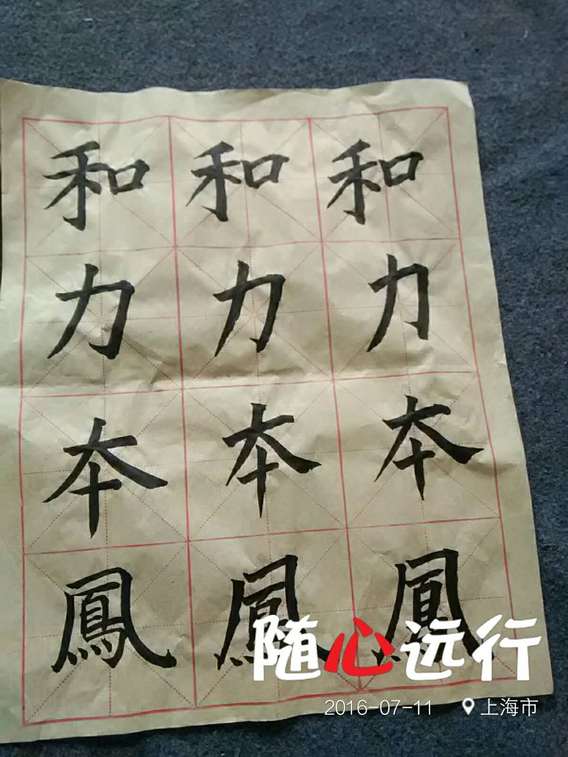 和和和
力力力
本本本
鳳鳳鳳
随心远行
2016-07-11 上海市